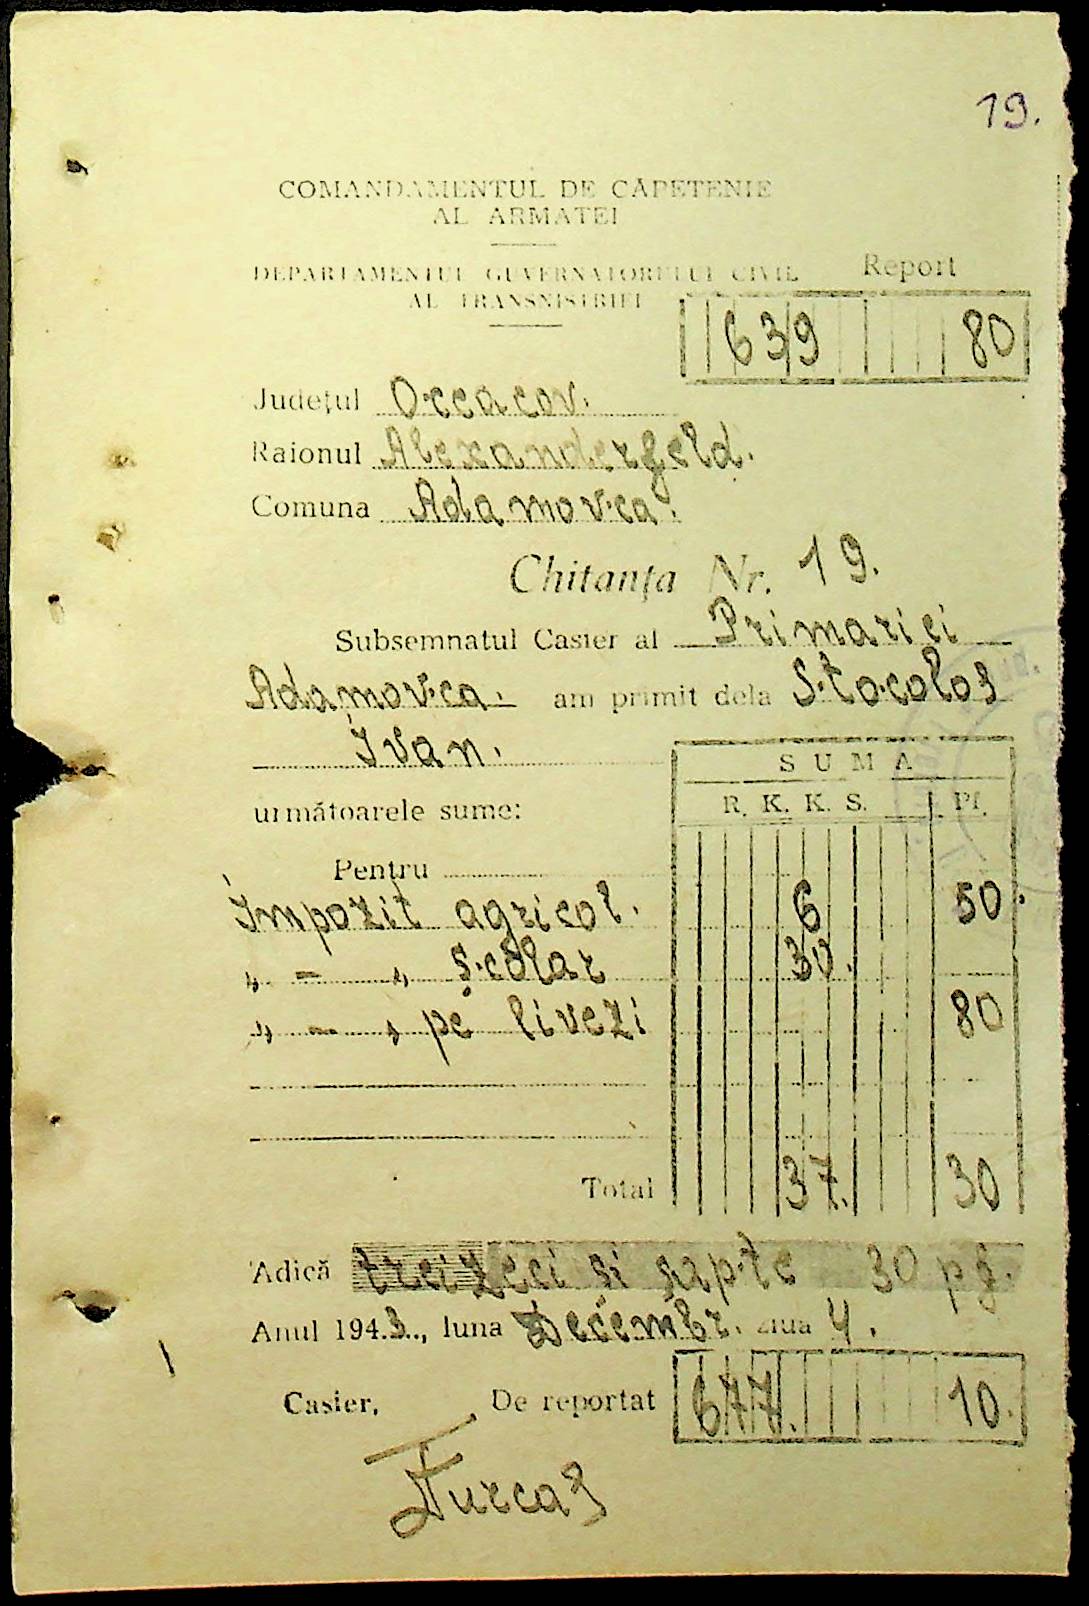 19.
COMANDAMENTUL DE CĂPETENIE
AL ARMATEI
DEPARTAMENTUL GUVERNATORULUI CIVIL
AL TRANSNISTRIEI
Report
639 80
Județul Oceacov.
Raionul Alexanderfeld.
Comuna Adamovca.
Chitanța Nr. 19.
Subsemnatul Casier al Primariei
Adamovca. am primit dela Stocolos
Ivan.
SUMA
R. K. K. S. Pf.
următoarele sume:
Pentru
Impozit agricol. 6 50.
„ - „ școlar 30.
„ - „ pe livezi 80
Total 37. 30
Adică treizeci si șapte 30 pf.
Anul 1943., luna Decembr. ziua 4.
Casier, De reportat 677. 10.
Țurcaș